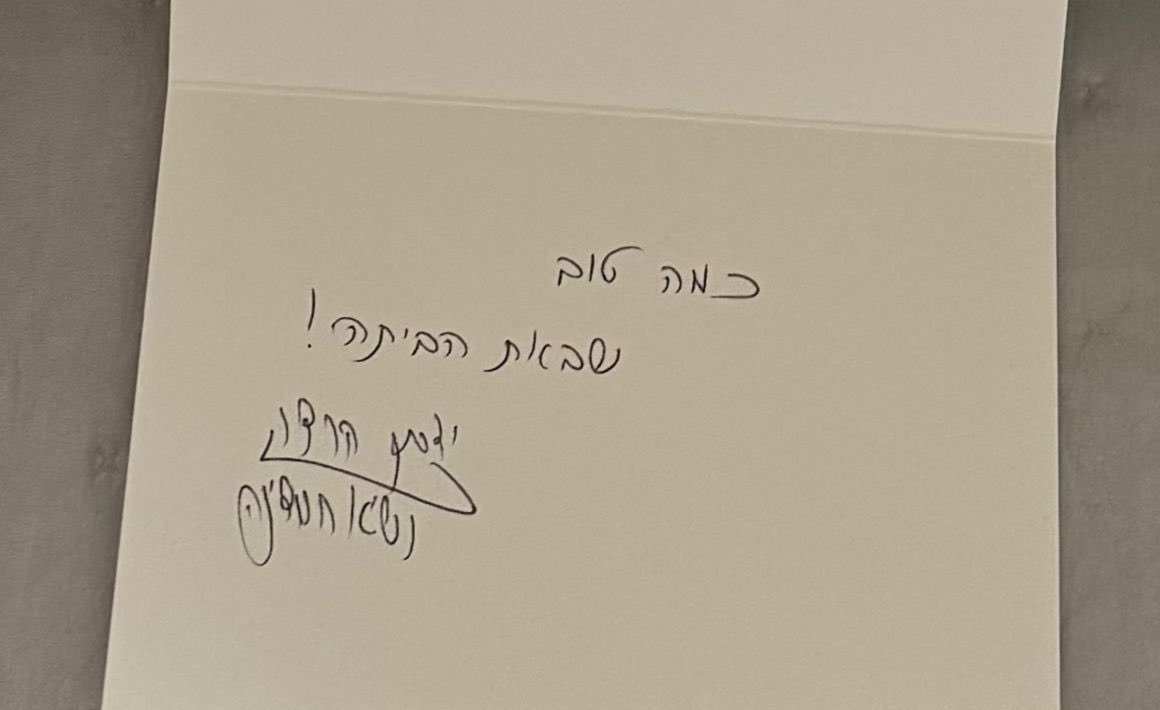 כמה טוב
שבאת הביתה!
יצחק הרצוג
נשיא המדינה